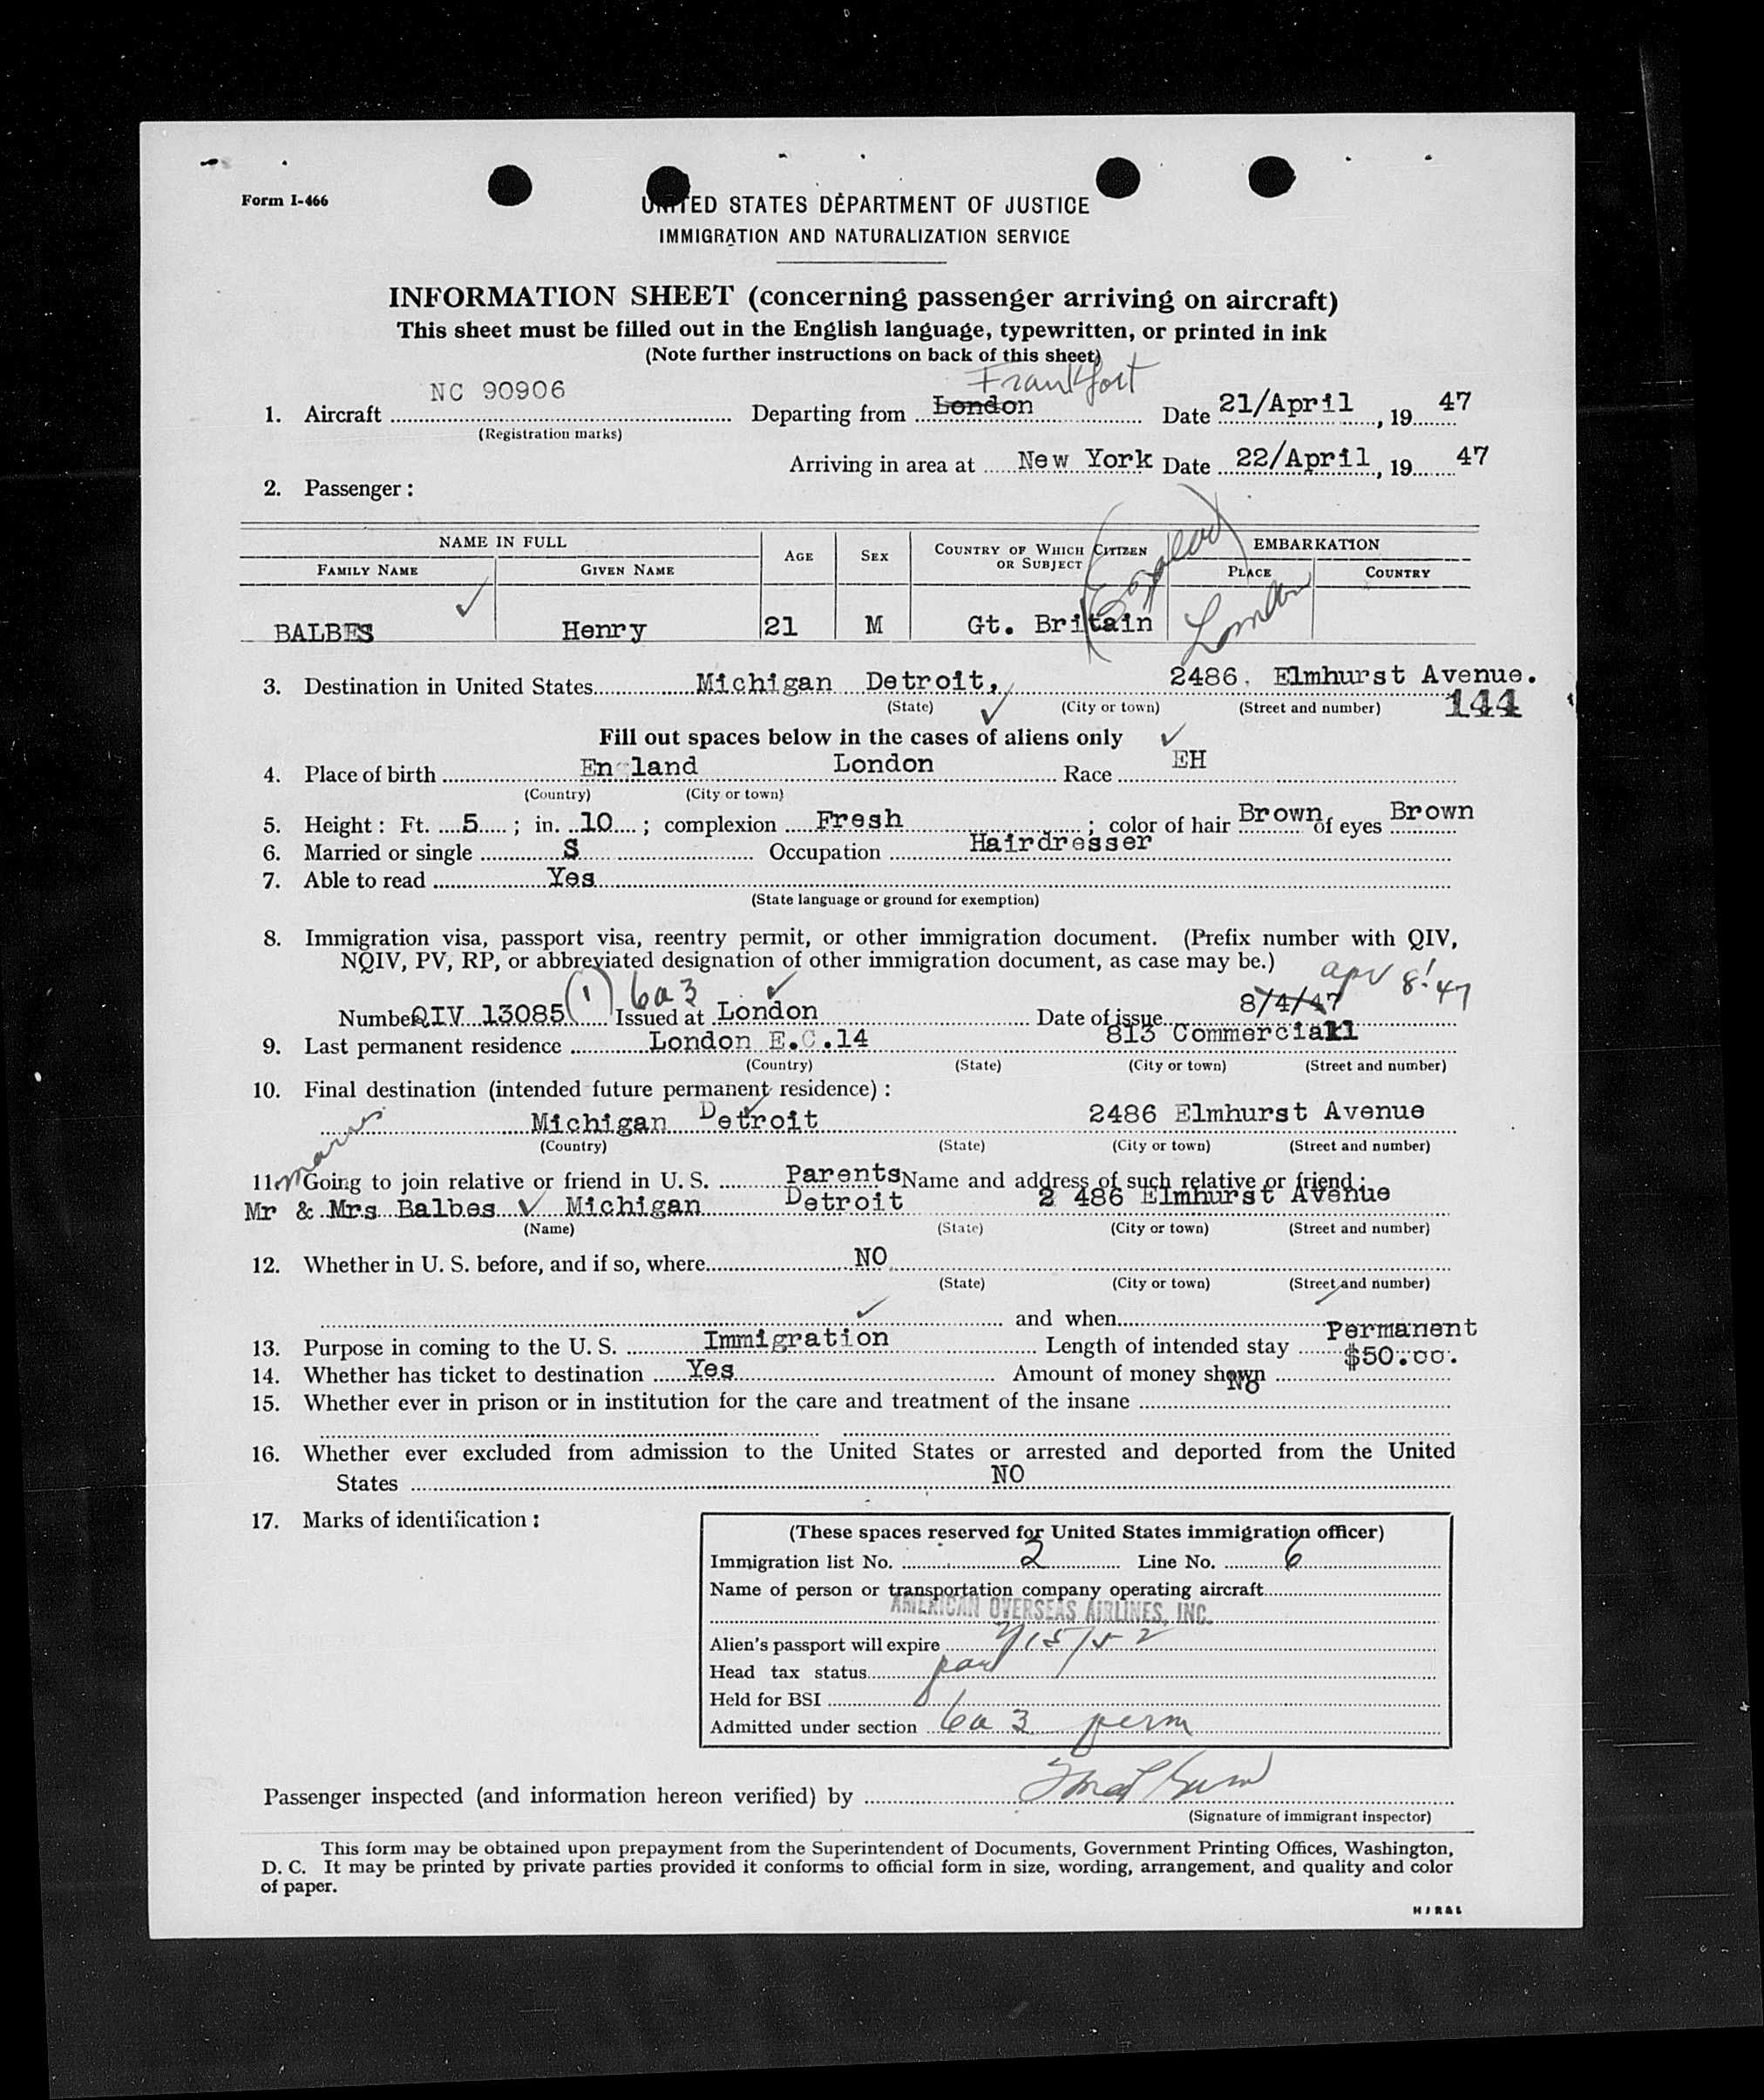 Form I-466
UNITED STATES DEPARTMENT OF JUSTICE
IMMIGRATION AND NATURALIZATION SERVICE
INFORMATION SHEET (concerning passenger arriving on aircraft)
This sheet must be filled out in the English language, typewritten, or printed in ink
(Note further instructions on back of this sheet)
Frankfort
1. Aircraft NC 90906 Departing from London Date 21/April, 1947
(Registration marks)
Arriving in area at New York Date 22/April, 1947
2. Passenger:
NAME IN FULL AGE SEX COUNTRY OF WHICH CITIZEN OR SUBJECT EMBARKATION
FAMILY NAME GIVEN NAME PLACE COUNTRY
BALBES Henry 21 M Gt. Britain London
3. Destination in United States Michigan Detroit, 2486. Elmhurst Avenue.
(State) (City or town) (Street and number) 144
Fill out spaces below in the cases of aliens only
4. Place of birth En land London Race EH
(Country) (City or town)
5. Height: Ft. 5; in. 10; complexion Fresh; color of hair Brown of eyes Brown
6. Married or single S Occupation Hairdresser
7. Able to read Yes
(State language or ground for exemption)
8. Immigration visa, passport visa, reentry permit, or other immigration document. (Prefix number with QIV,
NQIV, PV, RP, or abbreviated designation of other immigration document, as case may be.)
(1) 6a3 apr 8'47
Number QIV 13085 Issued at London Date of issue 8/4/47
9. Last permanent residence London E.C.14 813 Commerciall
(Country) (State) (City or town) (Street and number)
10. Final destination (intended future permanent residence):
Michigan Detroit 2486 Elmhurst Avenue
(Country) (State) (City or town) (Street and number)
11. Going to join relative or friend in U. S. Parents Name and address of such relative or friend:
Mr & Mrs Balbes Michigan Detroit 2 486 Elmhurst Avenue
(Name) (State) (City or town) (Street and number)
12. Whether in U. S. before, and if so, where NO
(State) (City or town) (Street and number)
and when
13. Purpose in coming to the U. S. Immigration Length of intended stay Permanent
14. Whether has ticket to destination Yes Amount of money shown $50.00.
15. Whether ever in prison or in institution for the care and treatment of the insane No
16. Whether ever excluded from admission to the United States or arrested and deported from the United
States NO
17. Marks of identification:
(These spaces reserved for United States immigration officer)
Immigration list No. 2 Line No. 6
Name of person or transportation company operating aircraft
AMERICAN OVERSEAS AIRLINES, INC.
Alien's passport will expire
Head tax status
Held for BSI
Admitted under section 6a 3 perm
Passenger inspected (and information hereon verified) by
(Signature of immigrant inspector)
This form may be obtained upon prepayment from the Superintendent of Documents, Government Printing Offices, Washington,
D. C. It may be printed by private parties provided it conforms to official form in size, wording, arrangement, and quality and color
of paper.
HJR&L